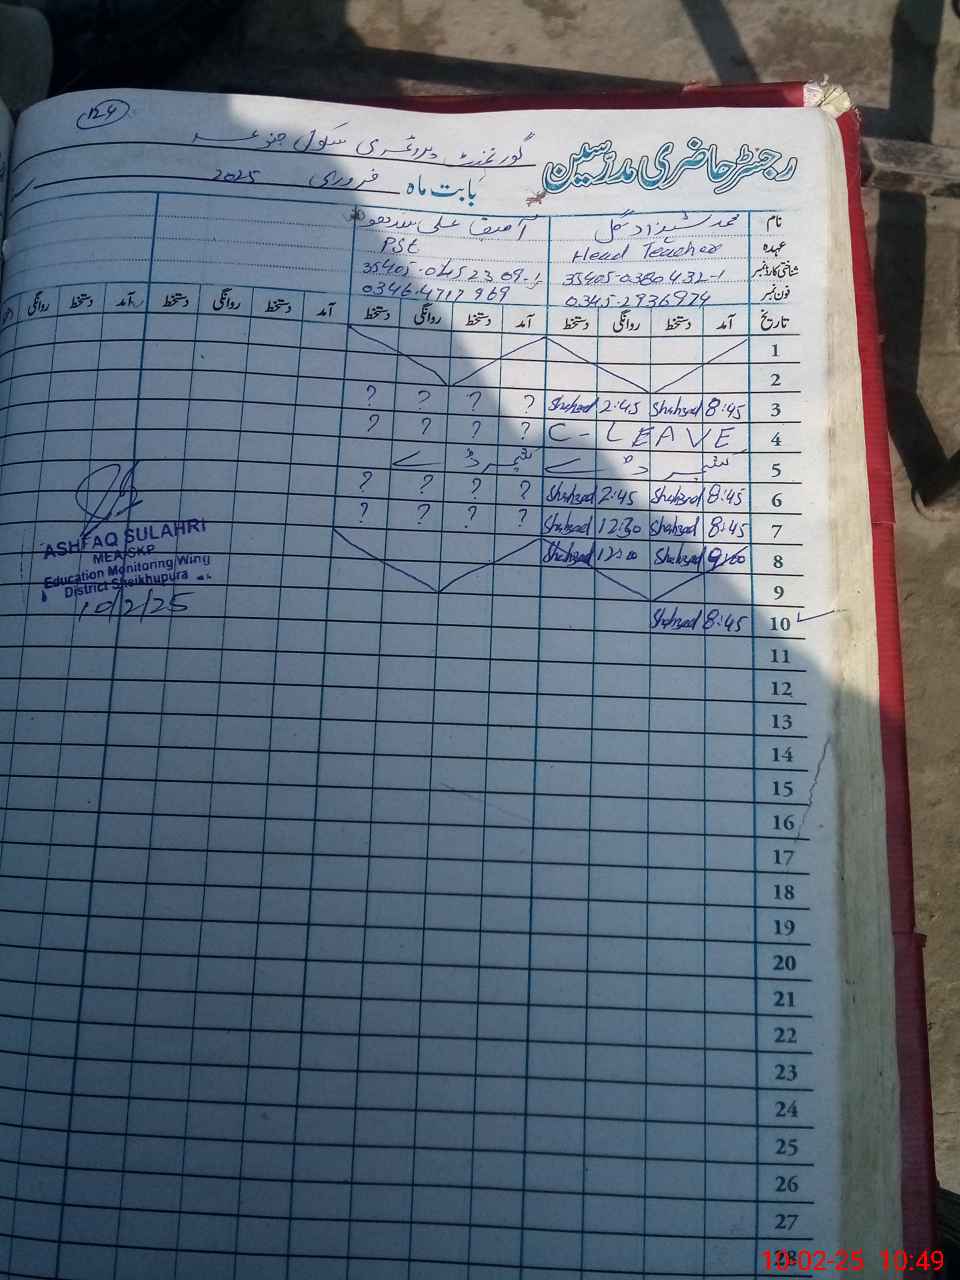 124
گورنمنٹ پرائمری سکول
رجسٹر حاضری مدرسین
بابت ماہ فروری 2025
نام محمد شہزاد گل آصف علی سندھو
عہدہ Head Teacher PST
شناختی کارڈ نمبر 35405-0380432-1 35405-0445
فون نمبر 0345-2936974 0346-4717969
تاریخ آمد دستخط روانگی دستخط آمد دستخط روانگی دستخط آمد دستخط روانگی دستخط آمد دستخط روانگی
1
2
3 8:45 Shahzad 2:45 Shahzad ? ? ? ?
4 C-LEAVE ? ? ? ?
5 کشمیر ڈے کشمیر ڈے
6 8:45 Shahzad 2:45 Shahzad ? ? ? ?
7 8:45 Shahzad 12:30 Shahzad ? ? ? ?
8 9:00 Shahzad 12:00 Shahzad
9
10 8:45 Shahzad
ASHFAQ SULAHRI
MEA/SKP
Education Monitoring Wing
District Sheikhupura
10/2/25
11
12
13
14
15
16
17
18
19
20
21
22
23
24
25
26
27
28
10-02-25 10:49